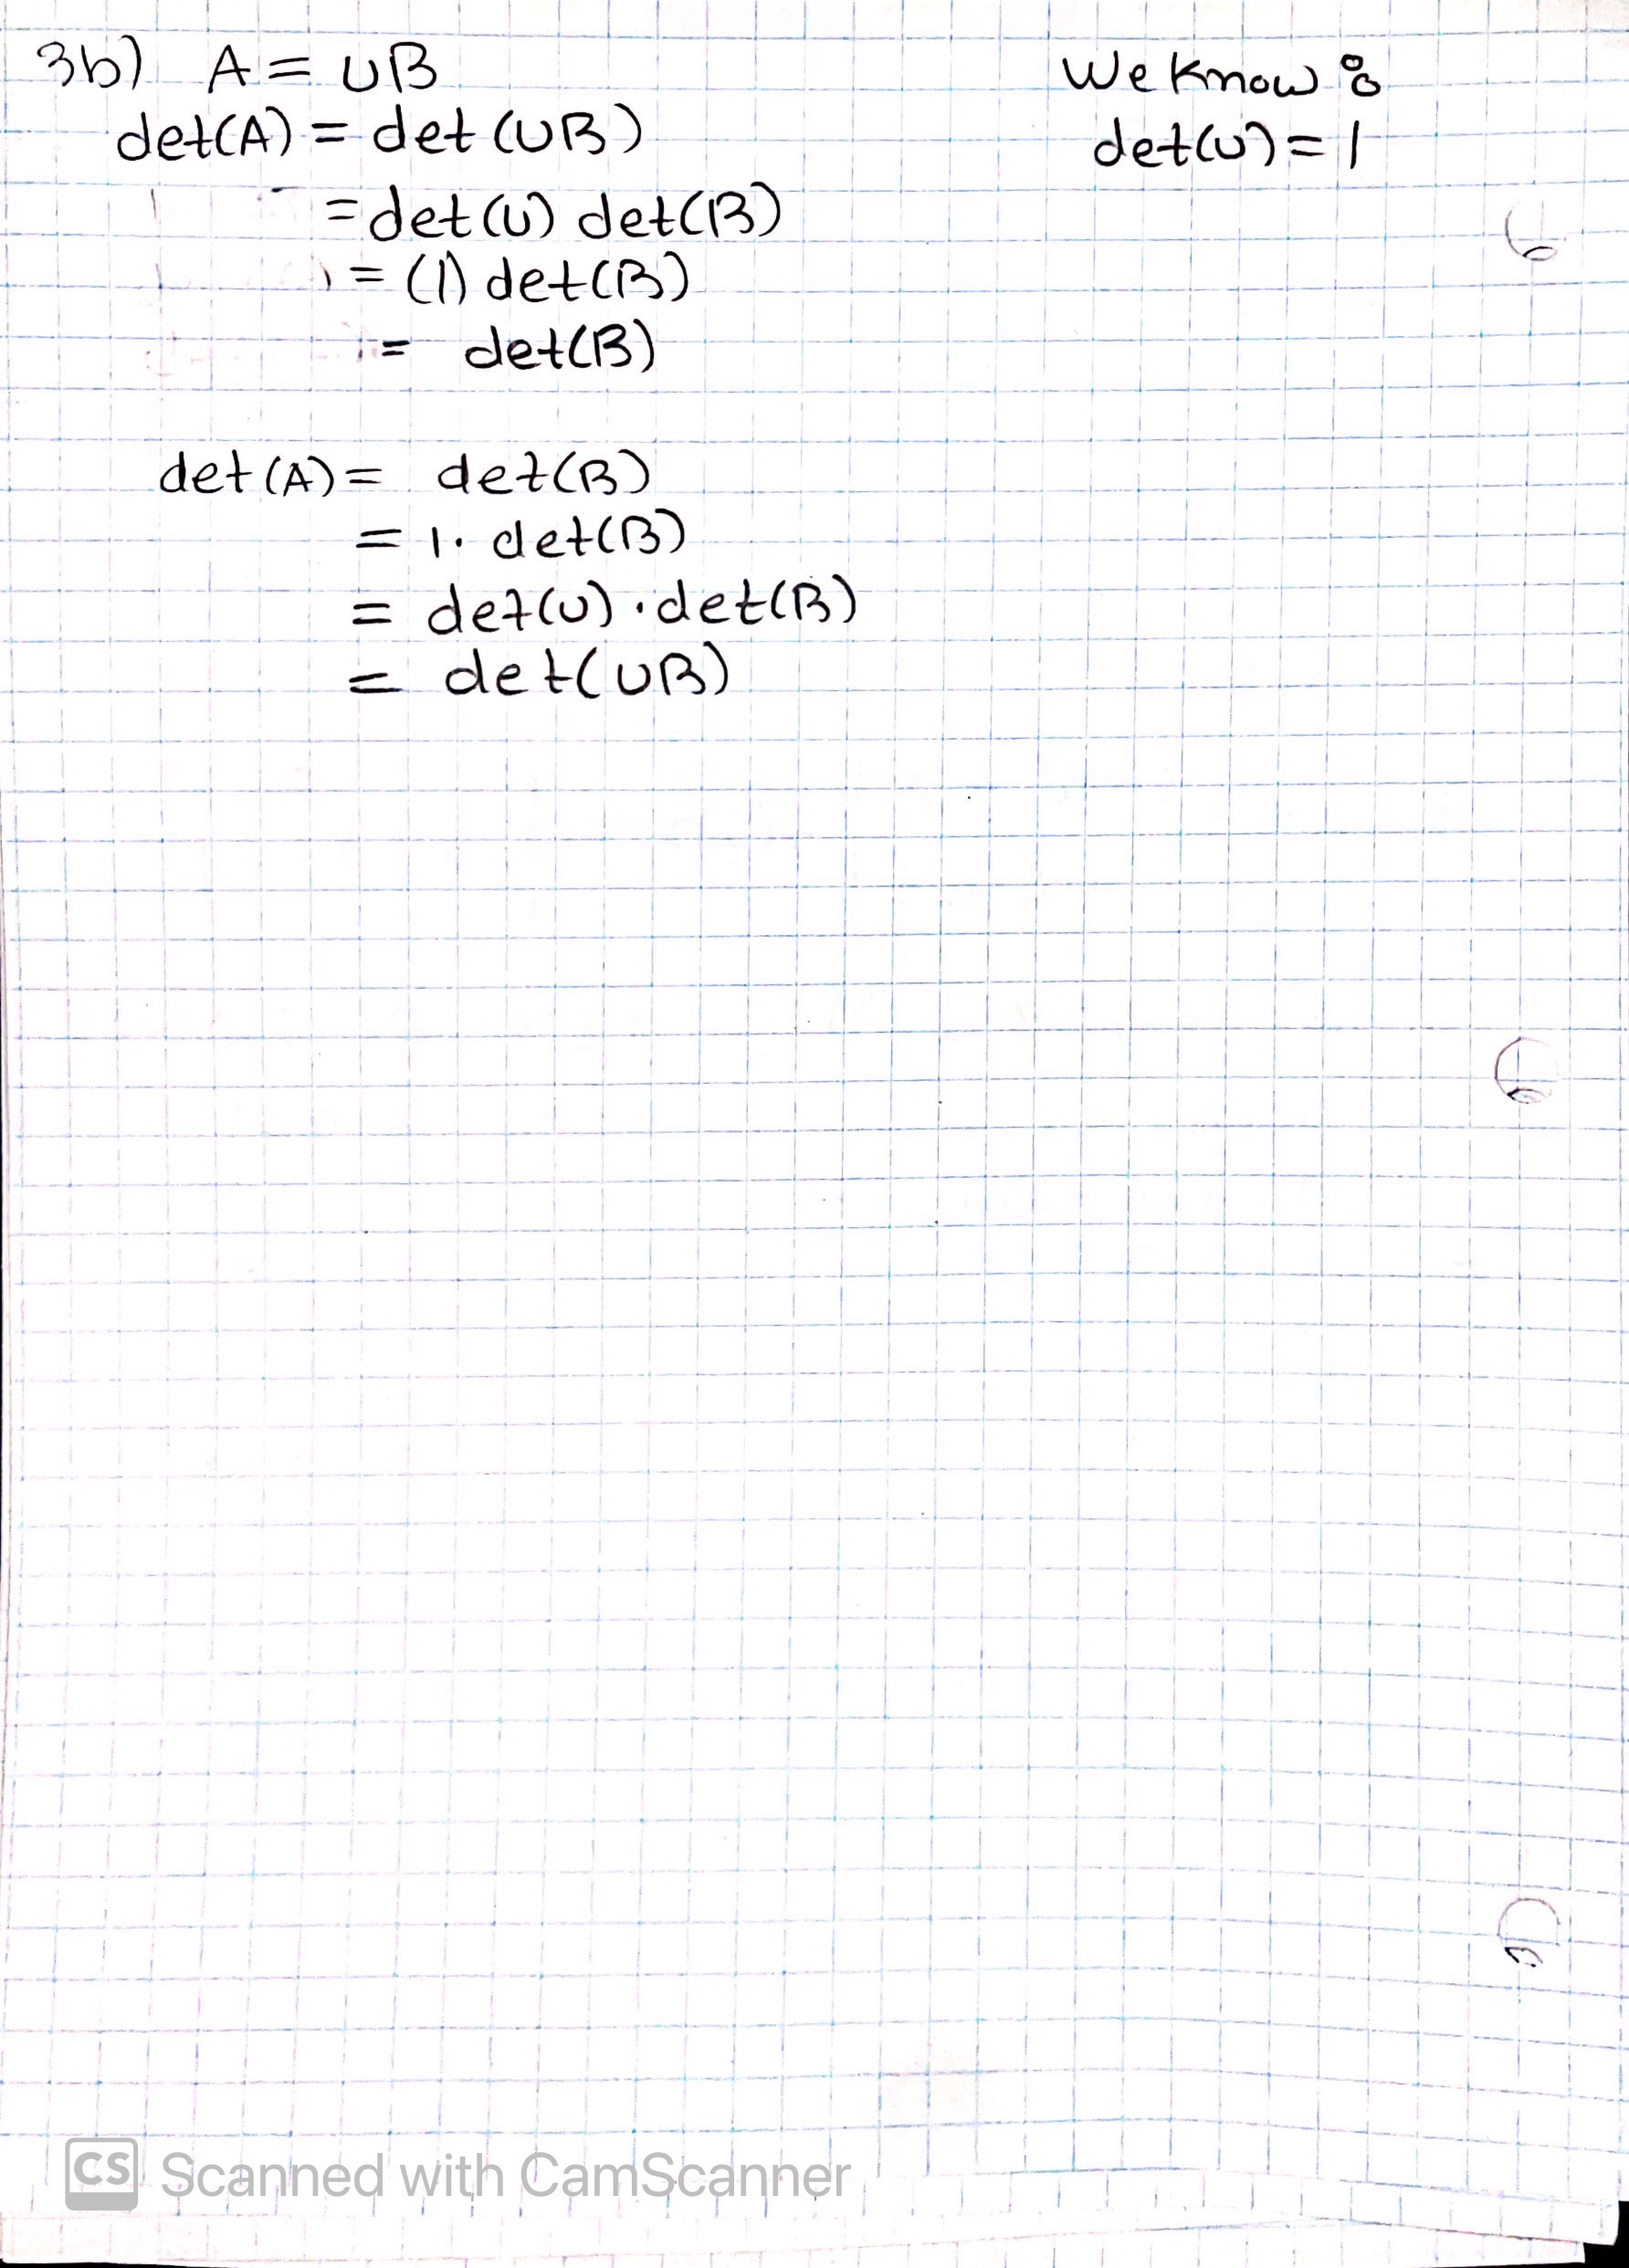 3b) A = UB
We Know :
det(A) = det (UB)
det(U) = 1
= det (U) det(B)
= (1) det(B)
= det(B)
det (A) = det(B)
= 1. det(B)
= det(U) · det(B)
= det(UB)
CS Scanned with CamScanner